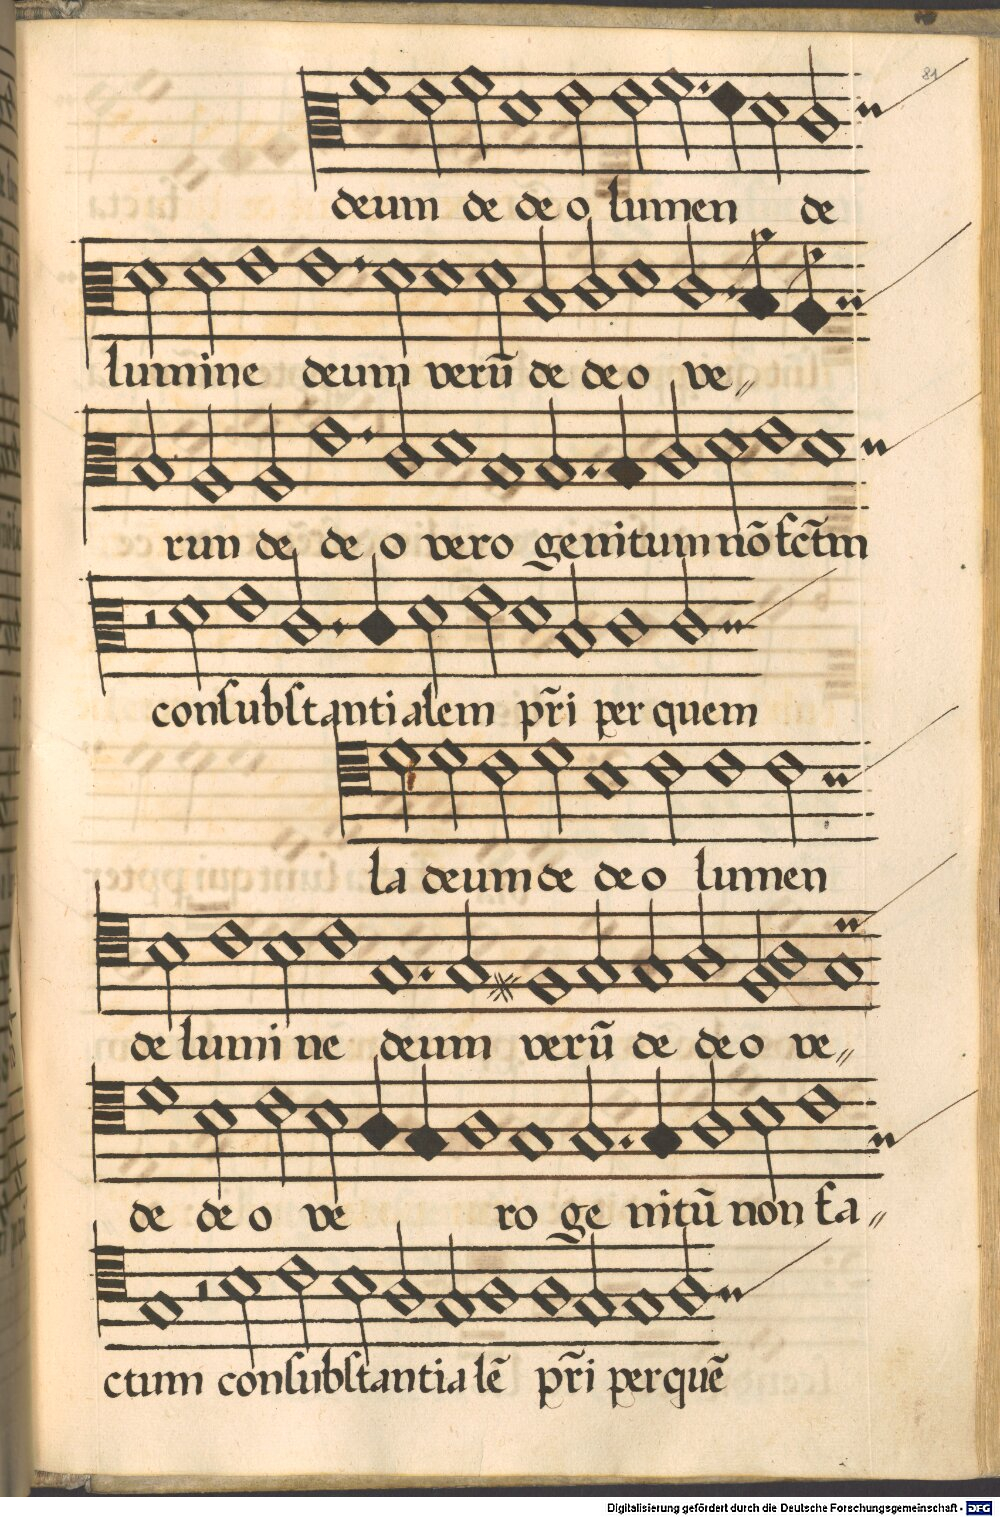 81
deum de de o lumen de
lumine deum verū de de o ve„
run de de o vero genitum nō fct̄m
consubstantialem pr̄i per quem
la deum de de o lumen
de lumi ne deum verū de de o ve„
de de o ve ro ge nitū non fa„
ctum consubstantia lē pr̄i per quē
Digitalisierung gefördert durch die Deutsche Forschungsgemeinschaft - DFG